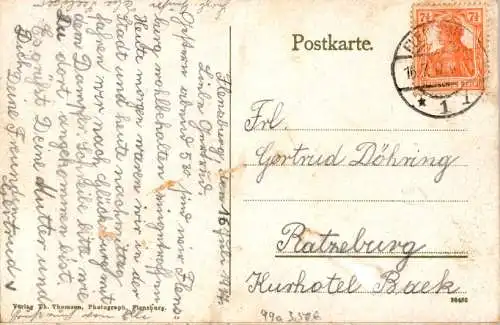 Postkarte.
7½
7½
Frl.
Gertrud Döhring
Ratzeburg
Kurhotel Baek
Flensburg, den 16. Juli
Liebe Gertrud,
Gestern abend 5 30 sind wir Flens-
burg wohlbehalten eingetroffen
Heute morgen waren wir in der
Stadt und heute nachmittag
fahren wir nach Glücksburg mit
dem Dampfer. Schreibe bitte wie
Du dort angekommen bist.
Es grüßt Deine Mutter und
Dich Deine Freundin
Gertrud
Verlag Th. Thomsen, Photograph, Flensburg.